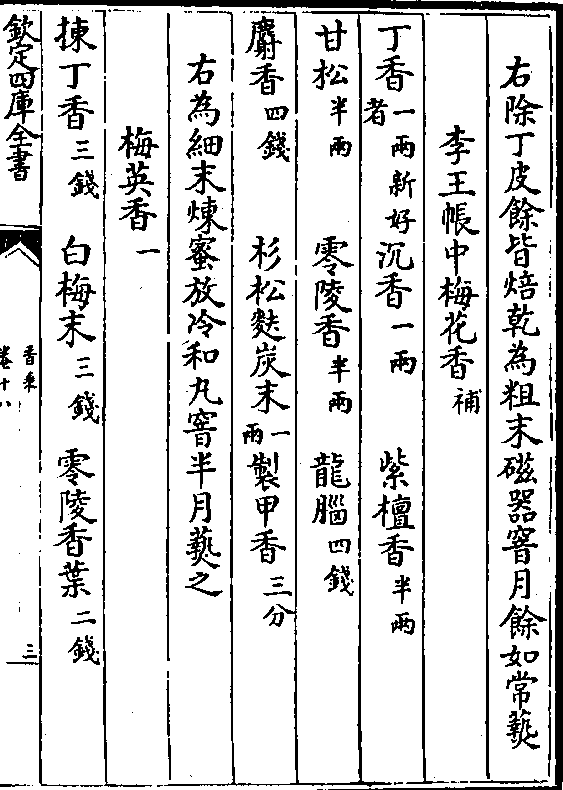 右除丁皮餘皆焙乾為粗末磁器窨月餘如常爇
李王帳中梅花香補
丁香一兩新好者沉香一兩 紫檀香半兩
甘松半兩 零陵香半兩 龍腦四錢
麝香四錢 杉松麩炭末一兩製甲香三分
右為細末煉蜜放冷和丸窨半月爇之
梅英香一
揀丁香三錢 白梅末三錢 零陵香葉二錢
欽定四庫全書
香乘
卷十八
三